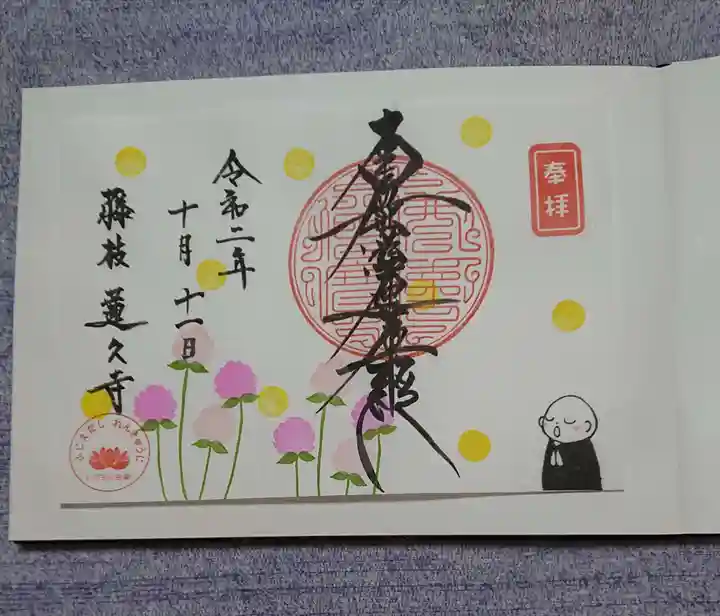 奉拝
南無妙法蓮華経
令和二年
十月十一日
藤枝 蓮久寺
ふじえだし れんきゅうじ